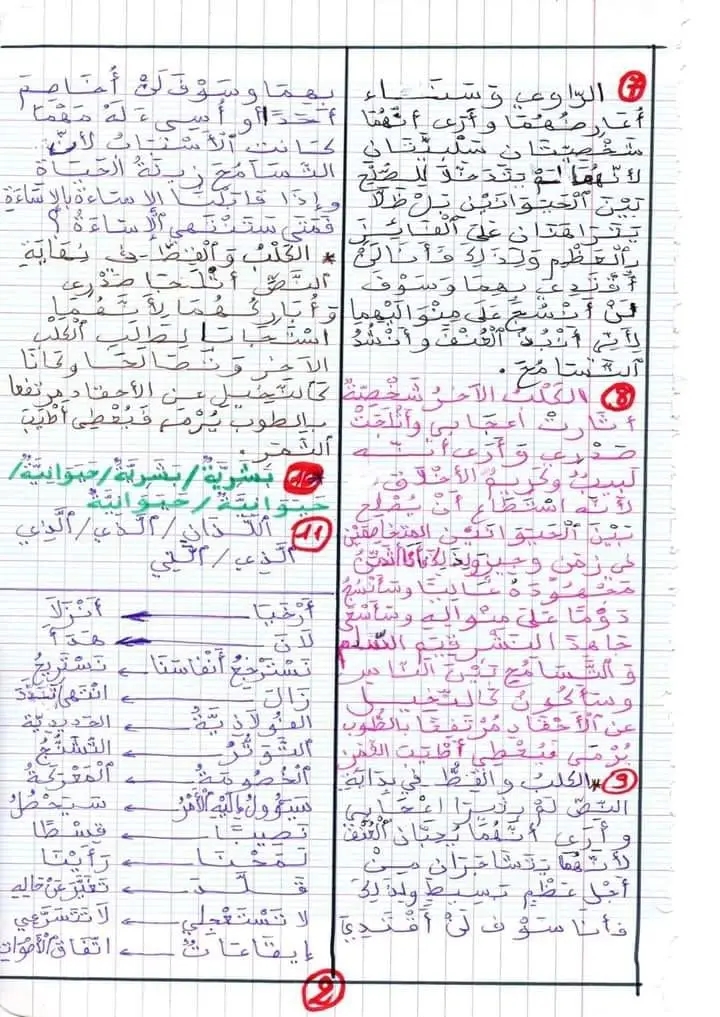 7 الرّاوي وَسَنَاء
أُعَارِضُهُمَا وَأَرَى أَنَّهُمَا
شَخْصِيَّتَانِ سَلْبِيَّتَانِ
لِأَنَّهُمَا لَمْ يَتَدَخَّلَا لِلصُّلْحِ
بَيْنَ الْحَيَوَانَيْنِ بَلْ ظَلَّا
يَتَرَاهَنَانِ عَلَى الْفَائِزِ
بِالْعَظْمِ وَلِذَلِكَ فَأَنَا لَنْ
أَقْتَدِي بِهِمَا وَسَوْفَ
لَنْ أَنْسُجَ عَلَى مِنْوَالَيْهِمَا
لِأَنِّي أَنْبُذُ الْعُنْفَ وَأَنْشُدُ
التَّسَامُحَ.
8 الكَلْبُ الآخَرُ شَخْصِيَّةٌ
أَثَارَتْ إِعْجَابِي وَأَثْلَجَتْ
صَدْرِي وَأَرَى أَنَّهُ
لَبِيبٌ وَكَرِيمُ الأَخْلَاقِ
لِأَنَّهُ اسْتَطَاعَ أَنْ يُصْلِحَ
بَيْنَ الْحَيَوَانَيْنِ المُتَخَاصِمَيْنِ
فِي زَمَنٍ وَجِيزٍ وَلِذَلِكَ أَنَا أُثَمِّنُ
مَجْهُودَهُ عَالِيًا وَسَأَنْسُجُ
دَوْمًا عَلَى مِنْوَالِهِ وَسَأَسْعَى
جَاهِدًا لِنَشْرِ قِيَمِ السِّلْمِ
وَالتَّسَامُحِ بَيْنَ النَّاسِ
وَسَأَكُونُ كَالنَّخِيلِ
عَنِ الأَحْقَادِ مُرْتَفِعًا بِالطُّوبِ
يُرْمَى فَيُعْطِي أَطْيَبَ الثَّمَرِ
9 * الكَلْبُ وَالْقِطُّ فِي بِدَايَةِ
النَّصِّ لَمْ يُثِيرَا إِعْجَابِي
وَأَرَى أَنَّهُمَا يُحِبَّانِ الْعُنْفَ
لِأَنَّهُمَا يَتَشَاجَرَانِ مِنْ
أَجْلِ عَظْمٍ بَسِيطٍ وَلِذَلِكَ
فَأَنَا سَوْفَ لَنْ أَقْتَدِيَ
بِهِمَا وَسَوْفَ لَنْ أُخَاصِمَ
أَحَدًا أَوْ أُسِيءَ لَهُ مَهْمَا
كَانَتِ الْأَسْبَابُ لِأَنَّ
التَّسَامُحَ زِينَةُ الْحَيَاةِ
وَإِذَا قَابَلْنَا الإِسَاءَةَ بِالإِسَاءَةِ
فَمَتَى سَتَنْتَهِي الْإِسَاءَةُ؟
* الكَلْبُ وَالْقِطُّ فِي نِهَايَةِ
النَّصِّ أَثْلَجَا صَدْرِي
وَأُبَارِكُهُمَا لِأَنَّهُمَا
اسْتَجَابَا لِطَلَبِ الْكَلْبِ
الآخَرِ وَتَصَالَحَا وَكَانَا
كَالنَّخِيلِ عَنِ الأَحْقَادِ مُرْتَفِعًا
بِالطُّوبِ يُرْمَى فَيُعْطِي أَطْيَبَ
الثَّمَرِ.
10 بَشَرِيَّةٌ/بَشَرِيَّةٌ/حَيَوَانِيَّةٌ/
حَيَوَانِيَّةٌ/حَيَوَانِيَّةٌ
11 اللَّذَانِ/الَّذِي/الَّذِي
الَّذِي/الَّتِي
أَرْخَيَا ← أَنْزَلَا
لَانَ ← هَدَأَ
نَسْتَرْجِعُ أَنْفَاسَنَا ← نَسْتَرِيحُ
زَالَ ← انْتَهَى/تَبَدَّدَ
الفُولَاذِيَّةُ ← الحَدِيدِيَّةُ
التَّوَتُّرُ ← التَّشَنُّجُ
الْخُصُومَةُ ← الْمَعْرَكَةُ
سَيَؤُولُ إِلَيْهِ الْأَمْرُ ← سَيَحْصُلُ
نَصِيبًا ← قِسْطًا
لَمَحْنَا ← رَأَيْنَا
لَا تَسْتَعْجِلِي ← لَا تَتَسَرَّعِي
إِيقَاعَاتٌ ← اتِّفَاقُ الْأَصْوَاتِ
2